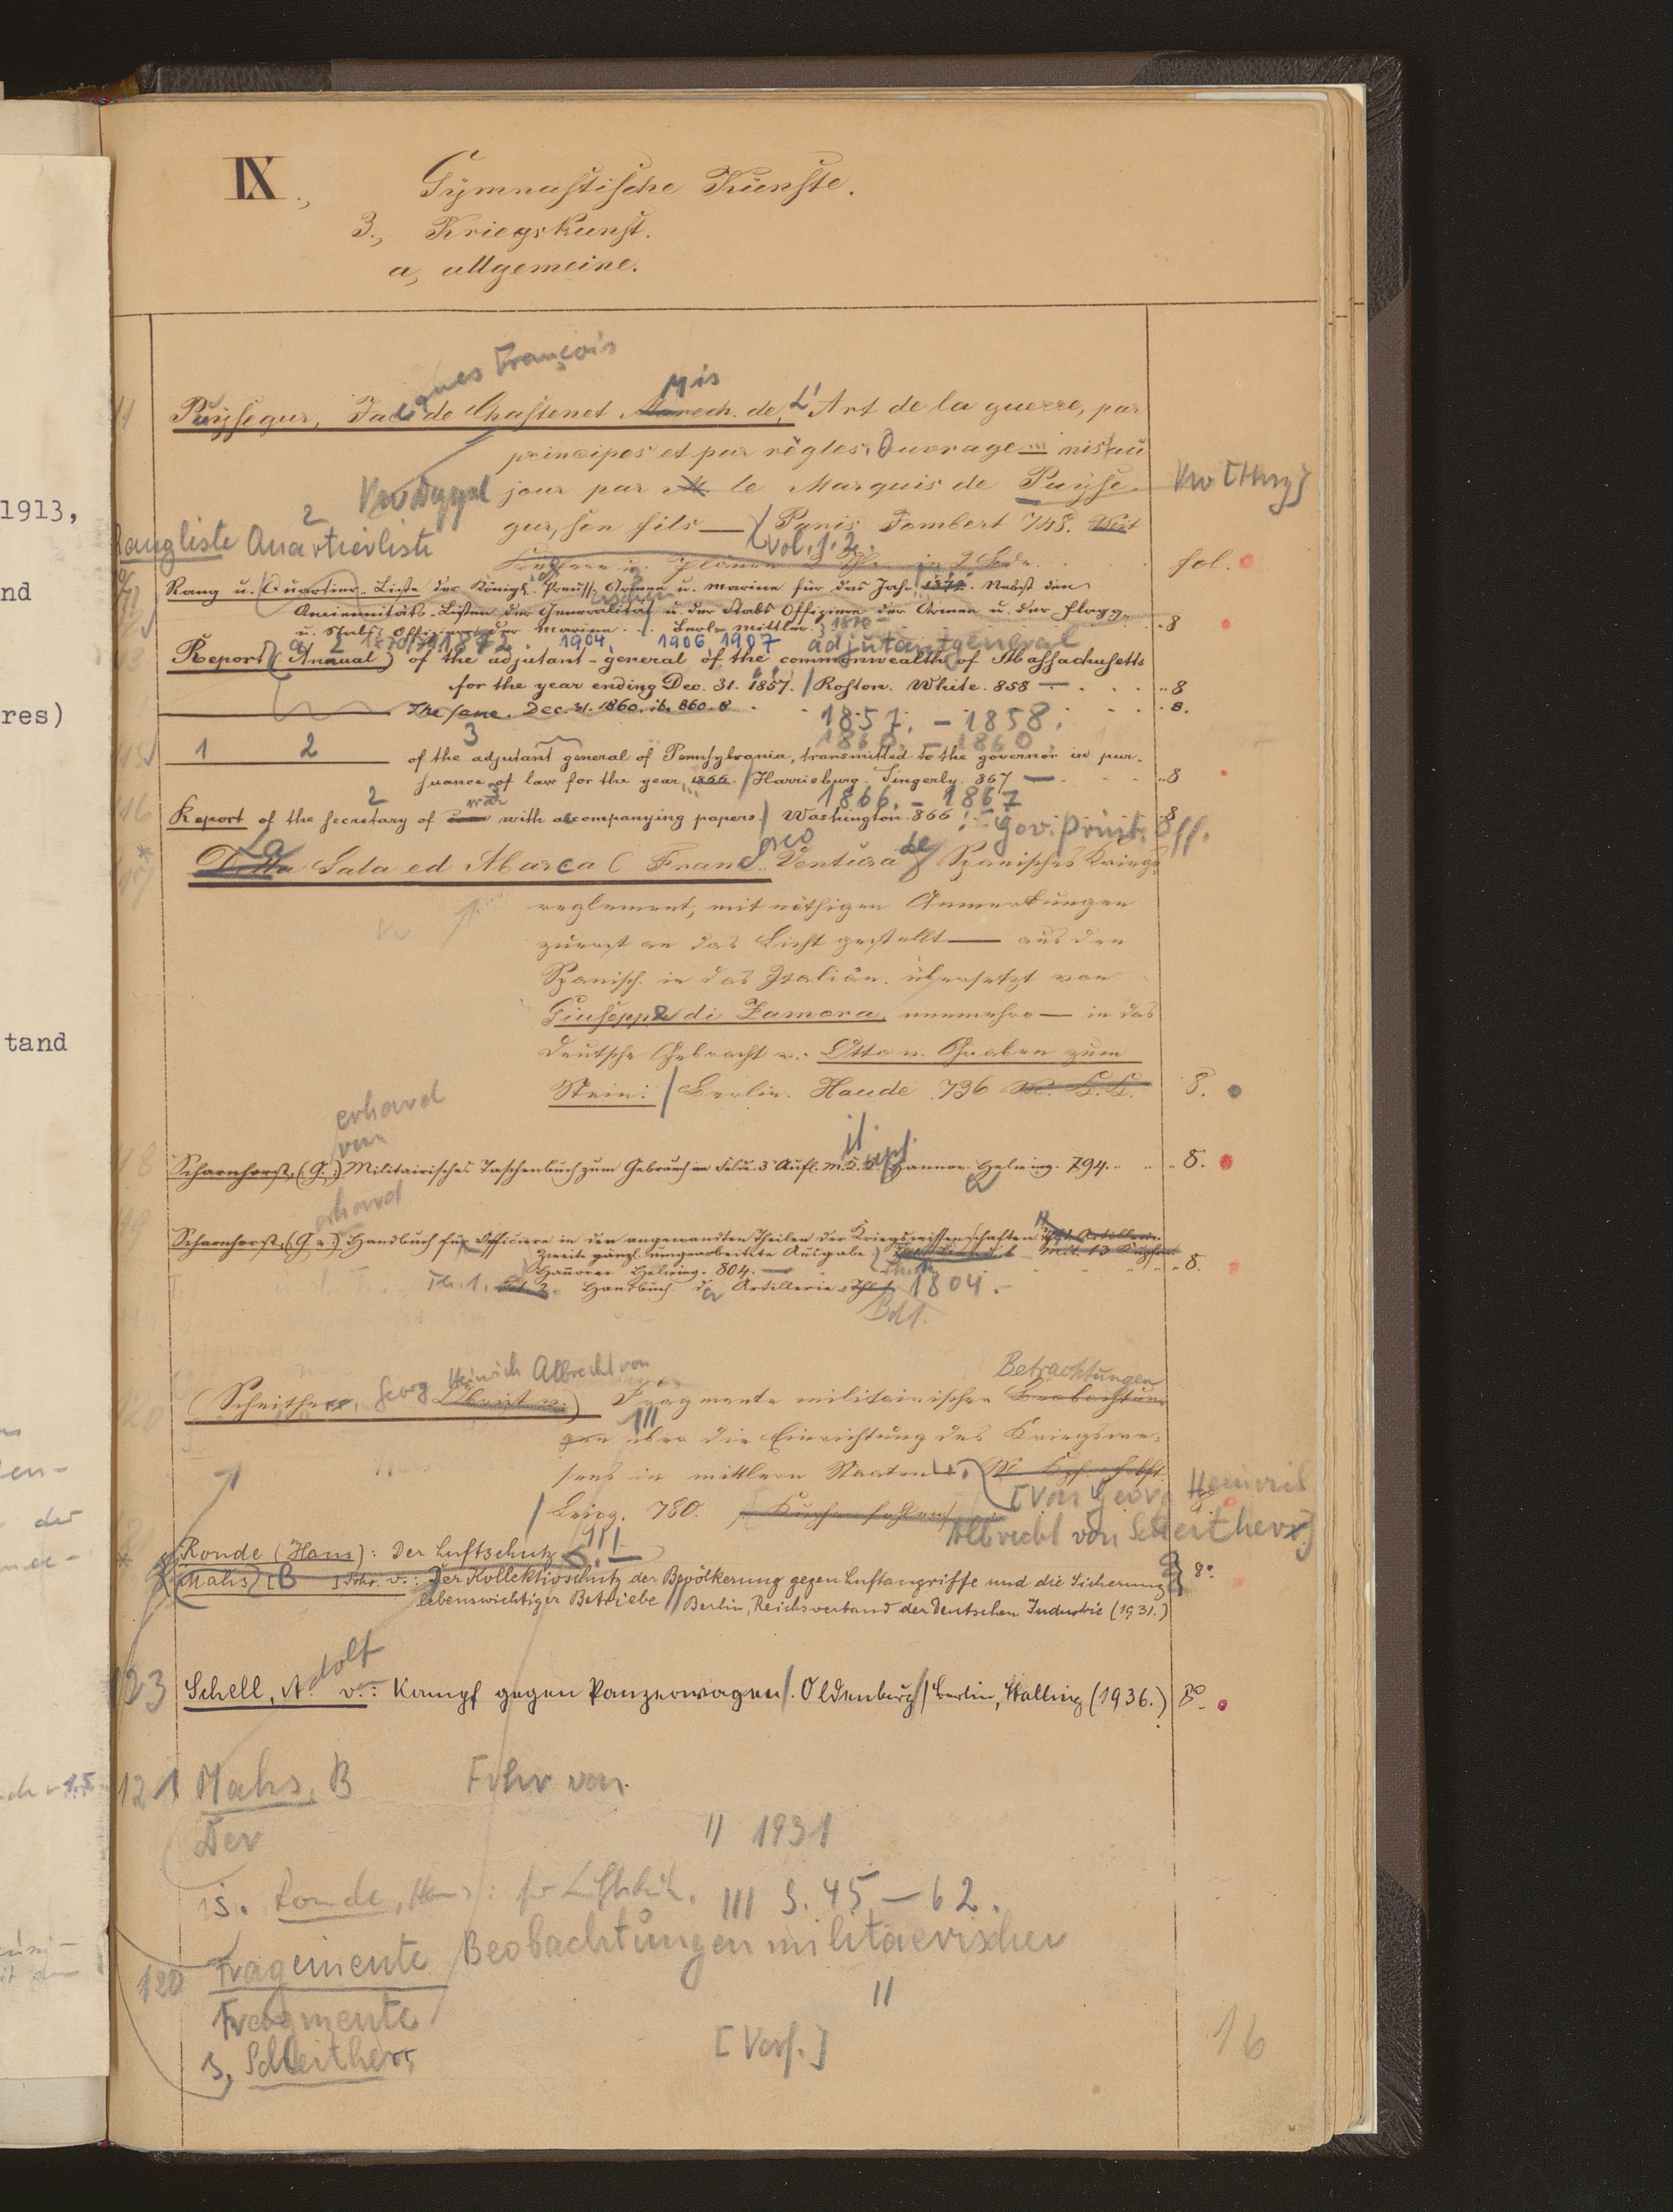 IX., Gymnastische Künste.
3., Kriegskunst.
a, allgemeine.
ques François
Mis
11 Puysegur, Jac. de Chastenet Marech. de, L'Art de la guerre, par
principes et par règles. Ouvrage ... mis au
jour par M. le Marquis de Puyse-
gur, son fils — / Paris Jombert 748. Mit
vol. 1. 2.
fol.
1913,
2
Rangliste Quartierliste
Rang u. Quartier-Liste der Königl. Preuss. Armee u. Marine für das Jahr 1870. Nebst den
Anciennitäts-Listen der Generalität u. der Stabs Offiziere der Armee u. der Flagg-
u. Stabs Offiziere der Marine. Berl. Mittler. 1870 8
nd
1870/71 1872. 1904, 1906, 1907 adjutantgeneral
Report (Annual) of the adjutant-general of the commonwealth of Massachusetts
for the year ending Dec. 31. 1857. / Boston. White. 858 — 8
The same. Dec. 31. 1860. ib. 860. 8 8.
res)
1857. – 1858.
1860. – 1860.
3
1 2 of the adjutant general of Pennsylvania, transmitted to the governor in pur-
suance of law for the year 1866. / Harrisburg. Singerly. 867 — 8
1866. – 1867
2 war
116 Report of the secretary of war with accompanying papers. / Washington. 866 8
Gov. Print. Off.
La Sala ed Abarca (Franc. Ventura de Spanisches Kriegs-
reglement, mit nöthigen Anmerkungen
zuerst an das Licht gestellt — aus dem
Spanisch. in das Italiän. übersetzt von
Giuseppe di Zamora, nunmehro — in das
Deutsche Gebracht v. Otto v. Graben zum
Stein: / Berlin. Haude. 736 8.
tand
erhard
von
118 Scharnhorst, (G.) Militairisches Taschenbuch zum Gebrauch im Felde. 3 Aufl. M. K. Hannov. Helwing. 794. 8.
erhard
119 Scharnhorst, (G. v.) Handbuch für Officiere in den angewandten Theilen der Kriegswissenschaften
Zweite gänzl. umgearbeitete Ausgabe Mit 13 Kupfer
Hannover Helwing. 804. — 8.
Th. 1. Handbuch d. Artillerie 1804. –
Bd 1.
Georg Heinrich Albrecht von
Betrachtungen
120 (Scheither, Obrist v.) Fragmente militairischer Beobachtun-
gen über die Einrichtung des Kriegswe-
sens in mittlern Staaten
/ Leipz. 780.
[Von Georg Heinrich
Albrecht von Scheither]
Ronde (Hans): Der Luftschutz
Mahs [B ] Frhr. v.: Der Kollektivschutz der Bevölkerung gegen Luftangriffe und die Sicherung 8°
lebenswichtiger Betriebe // Berlin, Reichsverband der Deutschen Industrie (1931.)
dolf
123 Schell, A. v.: Kampf gegen Panzerwagen /. Oldenburg / Berlin, Stalling (1936.) 8°
121 Mahs, B Frhr von
Der
// 1931
s. Ronde, Hans: Der Luftschutz. III S. 45 – 62.
120 Fragemente Beobachtungen militaerischer
//
Fragmente
s. Scheither
[Verf.]
16